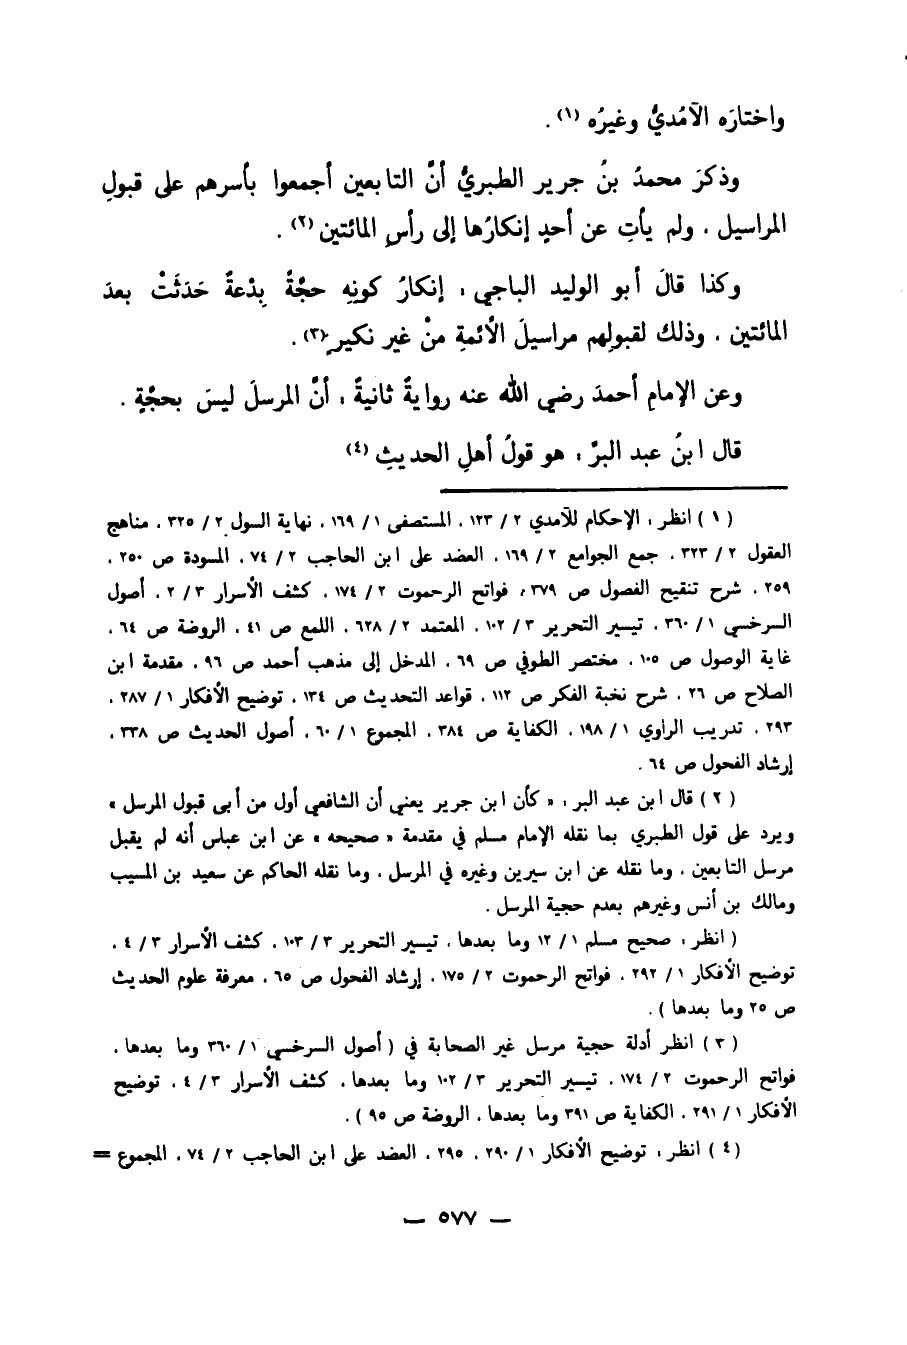 واختارَه الآمُديُّ وغيرُه (١) .
وذكرَ محمدُ بنُ جرير الطبريُّ أنَّ التابعين أجمعوا بأسرهم على قبولِ
المراسيل ، ولم يأتِ عن أحدٍ إنكارُها إلى رأسِ المائتين (٢) .
وكذا قالَ أبو الوليد الباجي : إنكارُ كونِه حجَّةً بِدْعةٌ حَدَثَتْ بعدَ
المائتين ، وذلك لقبولِهم مراسيلَ الأئمةِ منْ غير نكيرٍ (٣) .
وعن الإمامِ أحمدَ رضي الله عنه روايةٌ ثانيةٌ : أنَّ المرسلَ ليسَ بحجَّةٍ .
قال ابنُ عبد البرِّ : هو قولُ أهلِ الحديثِ (٤)
( ١ ) انظر : الإحكام للآمدي ٢ / ١٢٣ ، المستصفى ١ / ١٦٩ ، نهاية السول ٢ / ٣٢٥ ، مناهج
العقول ٢ / ٣٢٣ ، جمع الجوامع ٢ / ١٦٩ ، العضد على ابن الحاجب ٢ / ٧٤ ، المسودة ص ٢٥٠ ،
٢٥٩ ، شرح تنقيح الفصول ص ٣٧٩ ، فواتح الرحموت ٢ / ١٧٤ ، كشف الأسرار ٣ / ٢ ، أصول
السرخسي ١ / ٣٦٠ ، تيسير التحرير ٣ / ١٠٢ ، المعتمد ٢ / ٦٢٨ ، اللمع ص ٤١ ، الروضة ص ٦٤ ،
غاية الوصول ص ١٠٥ ، مختصر الطوفي ص ٦٩ ، المدخل إلى مذهب أحمد ص ٩٦ ، مقدمة ابن
الصلاح ص ٢٦ ، شرح نخبة الفكر ص ١١٢ ، قواعد التحديث ص ١٣٤ ، توضيح الأفكار ١ / ٢٨٧ ،
٢٩٣ ، تدريب الراوي ١ / ١٩٨ ، الكفاية ص ٣٨٤ ، المجموع ١ / ٦٠ ، أصول الحديث ص ٣٣٨ ،
إرشاد الفحول ص ٦٤ .
( ٢ ) قال ابن عبد البر : « كأن ابن جرير يعني أن الشافعي أول من أبى قبول المرسل »
ويرد على قول الطبري بما نقله الإمام مسلم في مقدمة « صحيحه » عن ابن عباس أنه لم يقبل
مرسل التابعين ، وما نقله عن ابن سيرين وغيره في المرسل ، وما نقله الحاكم عن سعيد بن المسيب
ومالك بن أنس وغيرهم بعدم حجية المرسل .
( انظر : صحيح مسلم ١ / ١٢ وما بعدها ، تيسير التحرير ٣ / ١٠٣ ، كشف الأسرار ٣ / ٤ ،
توضيح الأفكار ١ / ٢٩٢ ، فواتح الرحموت ٢ / ١٧٥ ، إرشاد الفحول ص ٦٥ ، معرفة علوم الحديث
ص ٢٥ وما بعدها ) .
( ٣ ) انظر أدلة حجية مرسل غير الصحابة في ( أصول السرخسي ١ / ٣٦٠ وما بعدها ،
فواتح الرحموت ٢ / ١٧٤ ، تيسير التحرير ٣ / ١٠٢ وما بعدها ، كشف الأسرار ٣ / ٤ ، توضيح
الأفكار ١ / ٢٩١ ، الكفاية ص ٣٩١ وما بعدها ، الروضة ص ٩٥ ) .
( ٤ ) انظر : توضيح الأفكار ١ / ٢٩٠ ، ٢٩٥ ، العضد على ابن الحاجب ٢ / ٧٤ ، المجموع =
— ٥٧٧ —